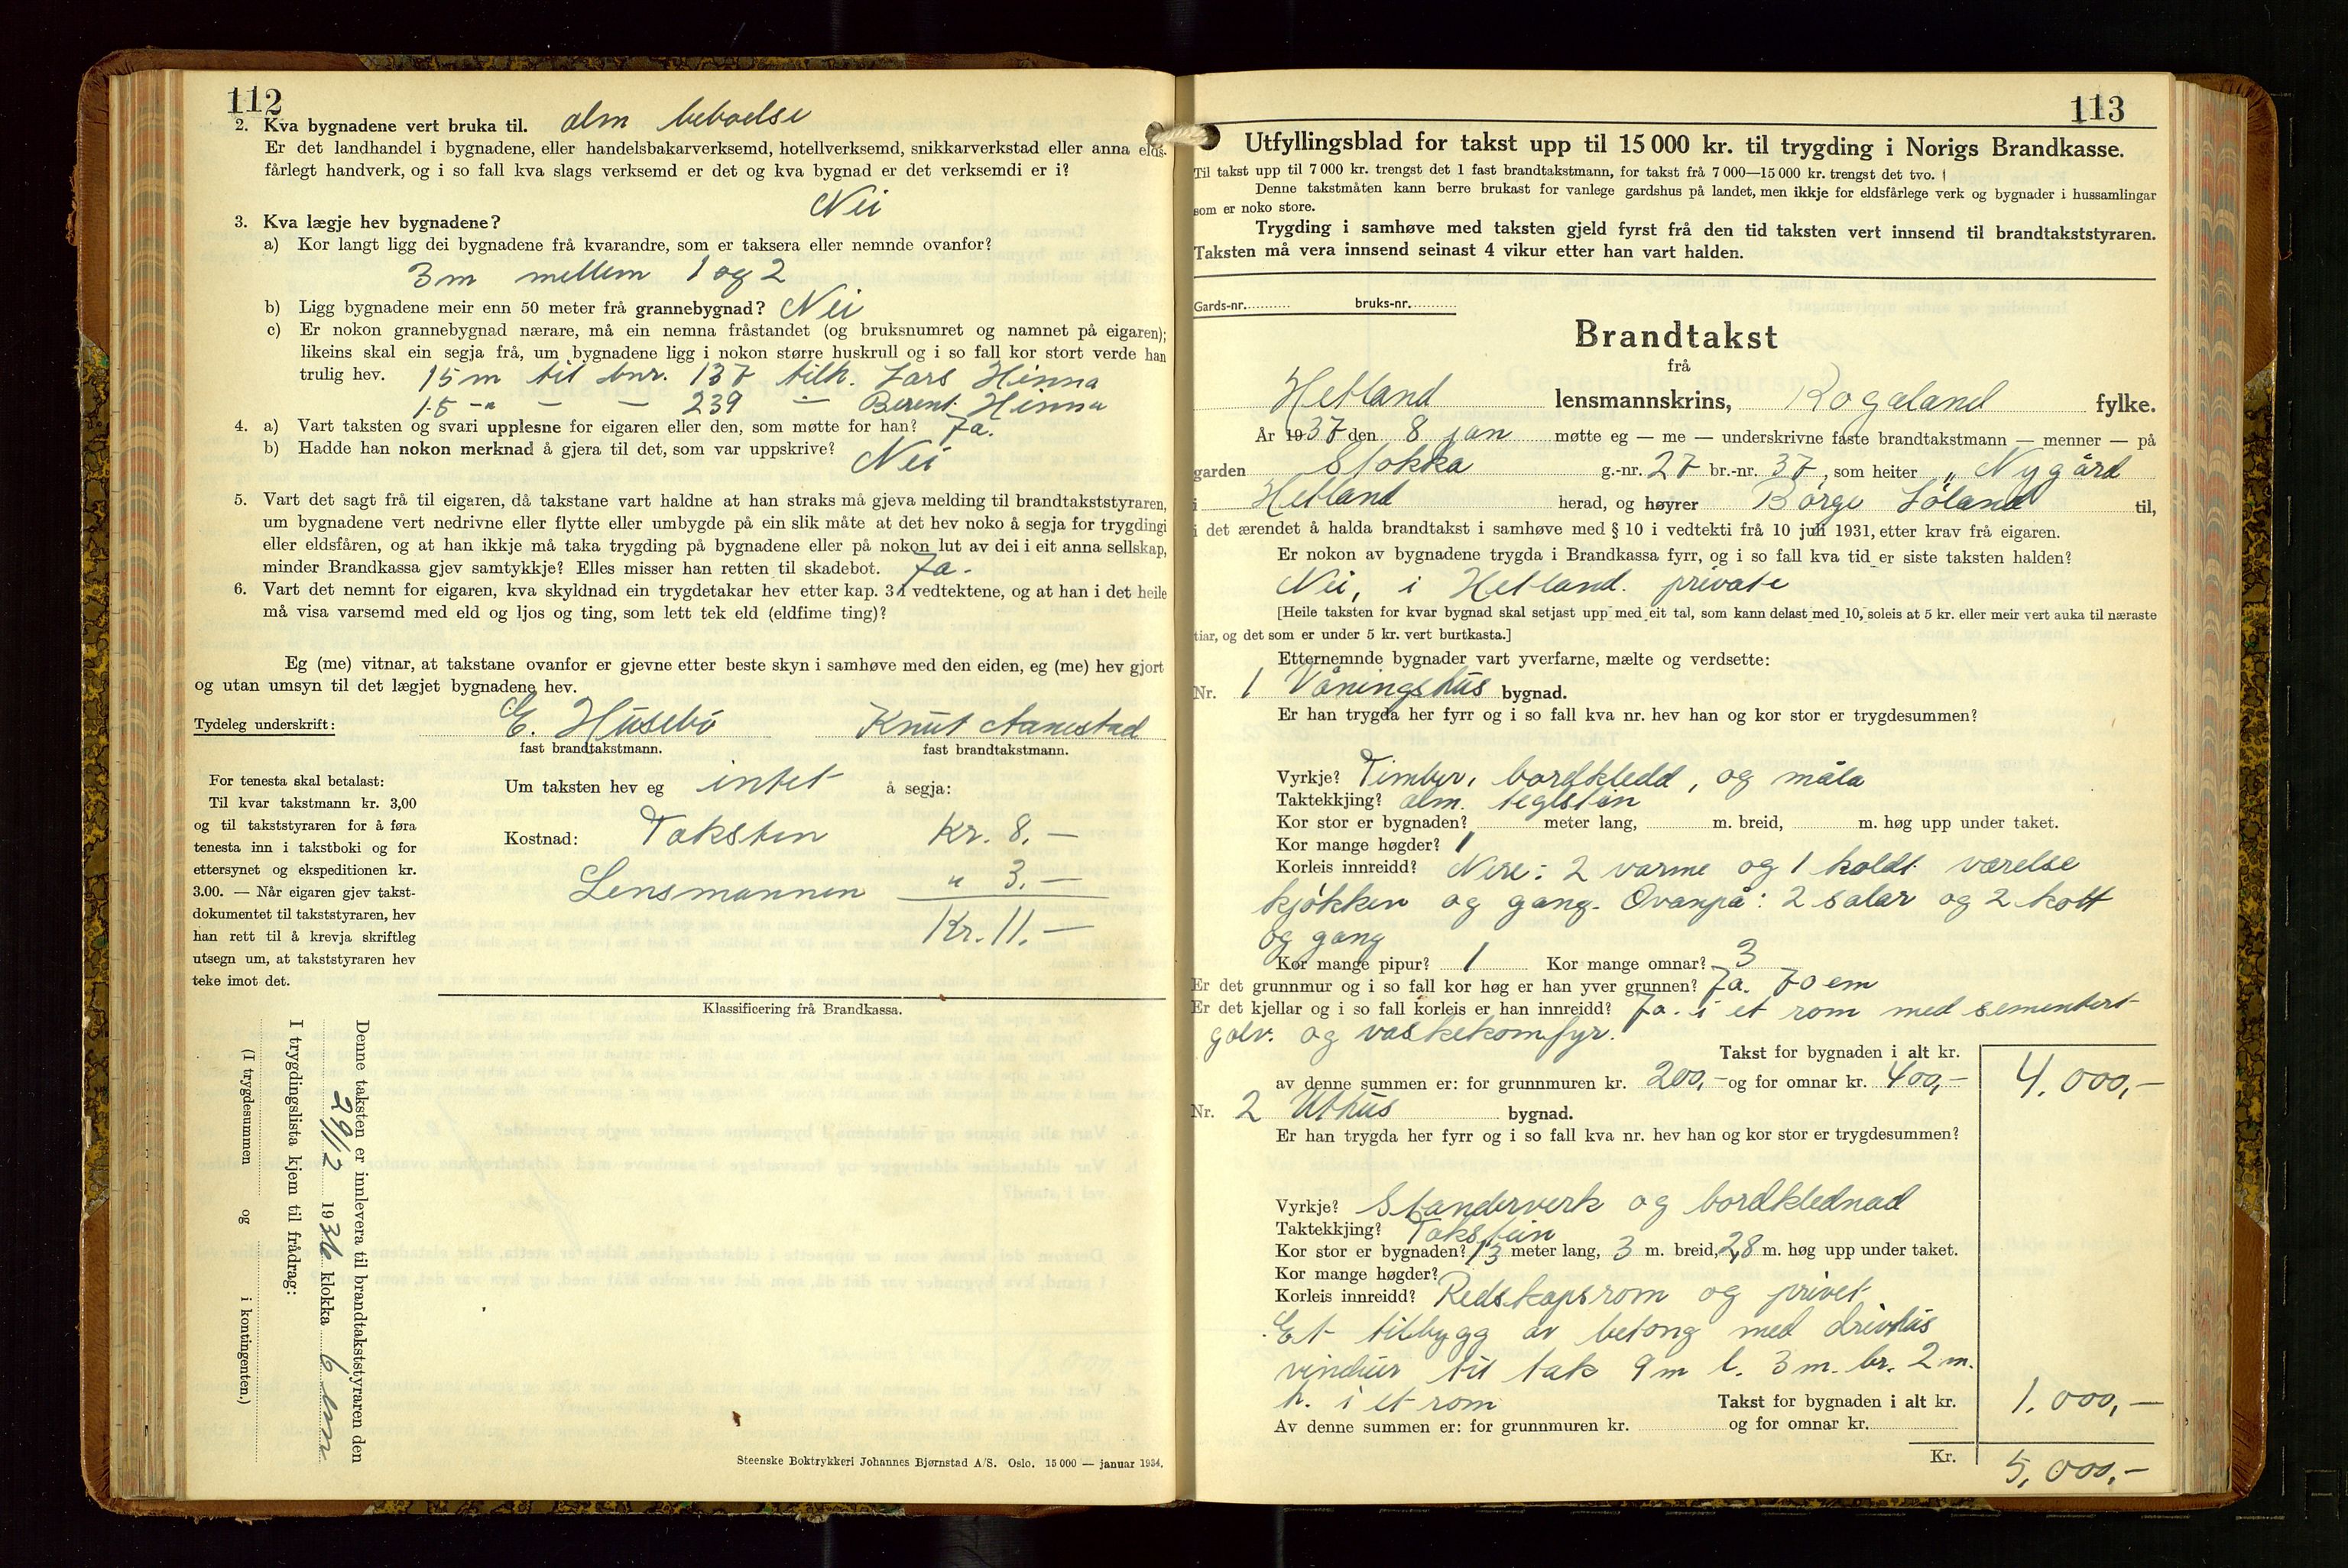 112
2. Kva bygnadene vert bruka til. alm beboelse
Er det landhandel i bygnadene, eller handelsbakarverksemd, hotellverksemd, snikkarverkstad eller anna elds-
fårlegt handverk, og i so fall kva slags verksemd er det og kva bygnad er det verksemdi er i?
Nei
3. Kva lægje hev bygnadene?
a) Kor langt ligg dei bygnadene frå kvarandre, som er taksera eller nemnde ovanfor?
3m mellem 1 og 2
b) Ligg bygnadene meir enn 50 meter frå grannebygnad? Nei
c) Er nokon grannebygnad nærare, må ein nemna fråstandet (og bruksnumret og namnet på eigaren);
likeins skal ein segja frå, um bygnadene ligg i nokon større huskrull og i so fall kor stort verde han
trulig hev. 15m til bnr. 137 tilh. Lars Hinna
15 -"- — — 239 — Berent Hinna
4. a) Vart taksten og svari upplesne for eigaren eller den, som møtte for han? Ja.
b) Hadde han nokon merknad å gjera til det, som var uppskrive? Nei
5. Vart det sagt frå til eigaren, då takstane vart haldne at han straks må gjeva melding til brandtakststyraren,
um bygnadene vert nedrivne eller flytte eller umbygde på ein slik måte at det hev noko å segja for trygdingi
eller eldsfåren, og at han ikkje må taka trygding på bygnadene eller på nokon lut av dei i eit anna sellskap,
minder Brandkassa gjev samtykkje? Elles misser han retten til skadebot. Ja.
6. Vart det nemnt for eigaren, kva skyldnad ein trygdetakar hev etter kap. 3 i vedtektene, og at han i det heile
må visa varsemd med eld og ljos og ting, som lett tek eld (eldfime ting)?
Eg (me) vitnar, at takstane ovanfor er gjevne etter beste skyn i samhøve med den eiden, eg (me) hev gjort
og utan umsyn til det lægjet bygnadene hev.
Tydeleg underskrift: E. Husebö Knut Aanestad
fast brandtakstmann. fast brandtakstmann.
For tenesta skal betalast:
Til kvar takstmann kr. 3,00
og til takststyraren for å føra
tenesta inn i takstboki og for
ettersynet og ekspeditionen kr.
3.00. — Når eigaren gjev takst-
dokumentet til takststyraren, hev
han rett til å krevja skriftleg
utsegn um, at takststyraren hev
teke imot det.
Um taksten hev eg intet å segja:
Kostnad: Taksten Kr. 8.—
Lensmannen " 3.—
Kr. 11.—
Klassificering frå Brandkassa.
Denne taksten er innlevera til brandtakststyraren den
29/12 1936 klokka 6 em
I trygdingslista kjem til frådrag:
(I trygdesummen og i kontingenten.)
Steenske Boktrykkeri Johannes Bjørnstad A/S. Oslo. 15 000 — januar 1934.
113
Utfyllingsblad for takst upp til 15 000 kr. til trygding i Norigs Brandkasse.
Til takst upp til 7 000 kr. trengst det 1 fast brandtakstmann, for takst frå 7 000—15 000 kr. trengst det tvo.
Denne takstmåten kann berre brukast for vanlege gardshus på landet, men ikkje for eldsfårlege verk og bygnader i hussamlingar
som er noko store.
Trygding i samhøve med taksten gjeld fyrst frå den tid taksten vert innsend til brandtakststyraren.
Taksten må vera innsend seinast 4 vikur etter han vart halden.
Gards-nr. bruks-nr.
Brandtakst
frå
Hetland lensmannskrins, Rogaland fylke.
År 1937 den 8 jan møtte eg — me — underskrivne faste brandtakstmann — menner — på
garden Stokka g.-nr. 27 br.-nr. 37, som heiter „ Nygård
i Hetland herad, og høyrer Börge Löland til,
i det ærendet å halda brandtakst i samhøve med § 10 i vedtekti frå 10 juli 1931, etter krav frå eigaren.
Er nokon av bygnadene trygda i Brandkassa fyrr, og i so fall kva tid er siste taksten halden?
Nei, i Hetland. private
[Heile taksten for kvar bygnad skal setjast upp med eit tal, som kann delast med 10, soleis at 5 kr. eller meir vert auka til næraste
tiar, og det som er under 5 kr. vert burtkasta.]
Etternemnde bygnader vart yverfarne, mælte og verdsette:
Nr. 1 Våningshus bygnad.
Er han trygda her fyrr og i so fall kva nr. hev han og kor stor er trygdesummen?
Vyrkje? Timber, bordkledd, og måla
Taktekkjing? alm. teglstein
Kor stor er bygnaden? meter lang, m. breid, m. høg upp under taket.
Kor mange høgder? 1
Korleis innreidd? Nere: 2 varme og 1 koldt værelse
kjökken og gang. Ovanpå: 2 salar og 2 kott
og gang
Kor mange pipur? 1 Kor mange omnar? 3
Er det grunnmur og i so fall kor høg er han yver grunnen? Ja. 70 cm
Er det kjellar og i so fall korleis er han innreidd? Ja. i et rom med sementert
golv. og vaskekomfyr.
Takst for bygnaden i alt kr. 4.000,—
av denne summen er: for grunnmuren kr. 200,- og for omnar kr. 400,-
Nr. 2 Uthus bygnad.
Er han trygda her fyrr og i so fall kva nr. hev han og kor stor er trygdesummen?
Vyrkje? Standerverk og bordklednad
Taktekkjing? Takstein
Kor stor er bygnaden? 13 meter lang, 3 m. breid, 2,8 m. høg upp under taket.
Kor mange høgder?
Korleis innreidd? Redskapsrom og privet
Et tilbygg av betong med drivhus
vinduer til tak 9m l. 3m. br. 2m.
h. i et rom Takst for bygnaden i alt kr. 1.000,—
Av denne summen er: for grunnmuren kr. og for omnar kr.
Kr. 5.000,—